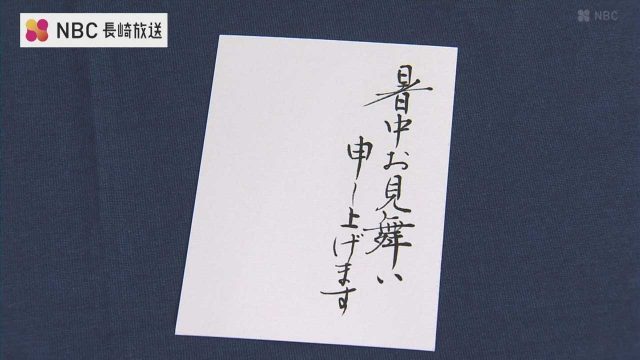 NBC 長崎放送
NBC
暑中お見舞い
申し上げます